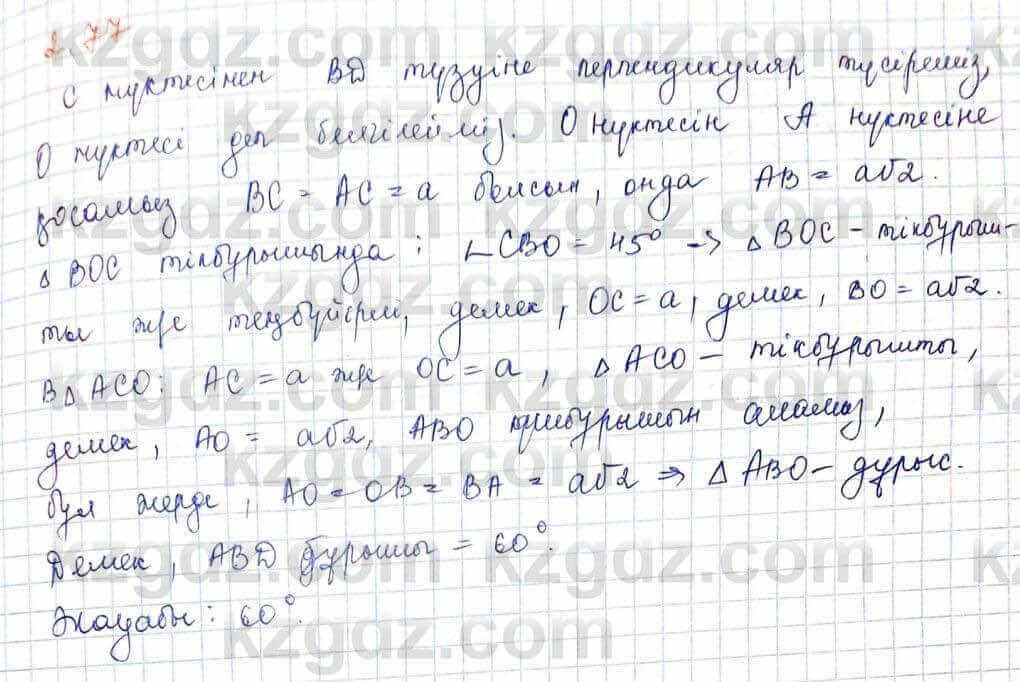 2.77
С нүктесінен BD түзуіне перпендикуляр түсіреміз,
О нүктесі деп белгілейміз. О нүктесін А нүктесіне
қосамыз BC = AC = a болсын, онда AB = a√2.
∆ BOC тікбұрышында: ∟CBO = 45° → ∆ BOC – тікбұрыш-
ты және теңбүйірлі, демек, OC = a, демек, BO = a√2.
В∆ ACO: AC = a және OC = a, ∆ ACO – тікбұрышты,
демек, AO = a√2, ABO үшбұрышын аламыз,
бұл жерде, AO = OB = BA = a√2 ⇒ ∆ ABO – дұрыс.
Демек, ABD бұрышы = 60°.
Жауабы: 60°.
kzgdz.com